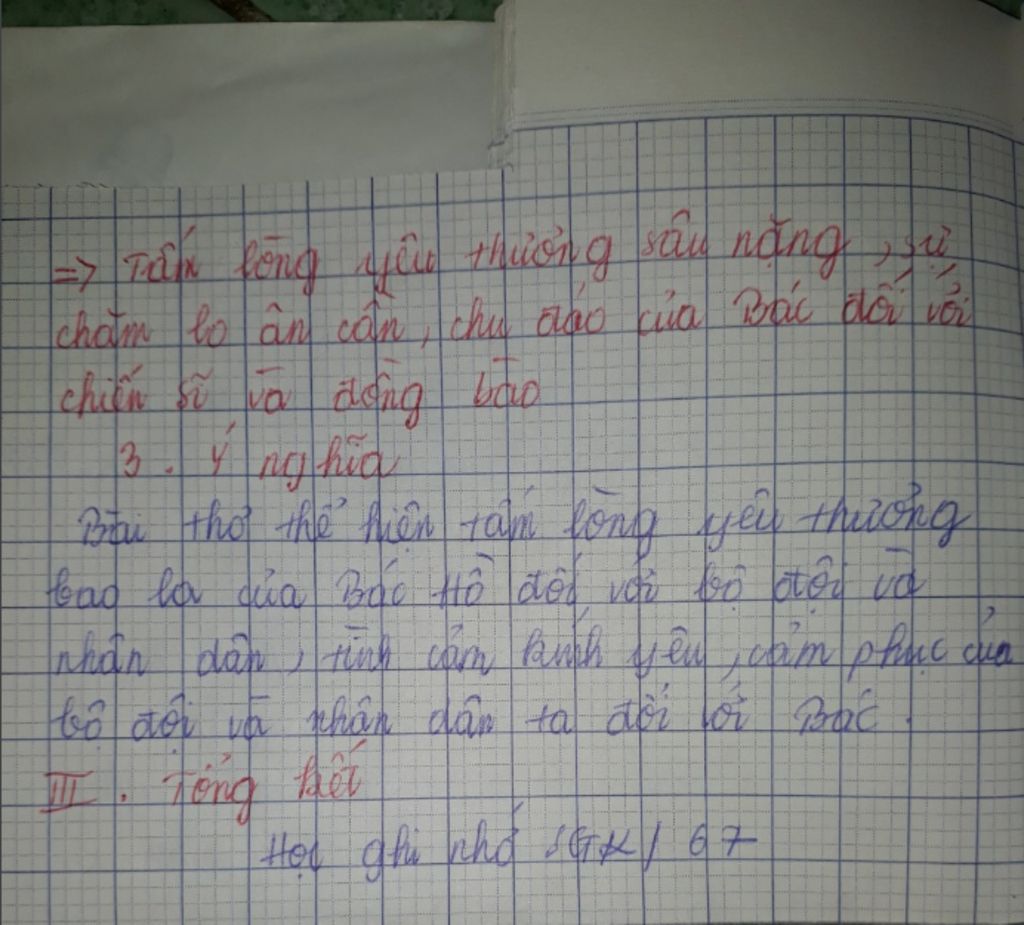 => Tấm lòng yêu thương sâu nặng, sự
chăm lo ân cần, chu đáo của Bác đối với
chiến sĩ và đồng bào
3. Ý nghĩa
Bài thơ thể hiện tấm lòng yêu thương
bao la của Bác Hồ đối với bộ đội và
nhân dân, tình cảm kính yêu, cảm phục của
bộ đội và nhân dân ta đối với Bác.
III. Tổng kết
Học ghi nhớ SGK/ 67